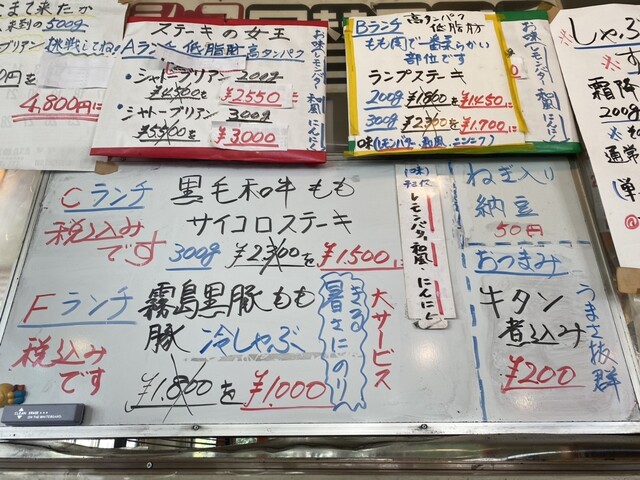 こまで来たか
来到の500g
ブリアン挑戦してね!
円を
4,800円に
ステーキの女王
Aランチ 低脂肪 高タンパク
・シャトーブリアン 200g
¥4,500を ¥2,550に
・シャトーブリアン 300g
¥5,500を ¥3,000
お味 レモンバター 和風 にんにく
Bランチ 高タンパク
低脂肪
もも肉で一番柔らかい
部位です
ランプステーキ
200g ¥1,860を ¥1,450に
300g ¥2,300を ¥1,700に
味(レモンバター、和風、ニンニク)
お味 レモンバター 和風 にんにく
しゃぶ
霜降
200g
通常
Cランチ 黒毛和牛もも
サイコロステーキ
税込み
です
300g ¥2,300を ¥1,500に
レモンバター、和風、にんにく
Fランチ 霧島黒豚もも
豚 冷しゃぶ
税込み
です
¥1,800を ¥1,000
きる
暑さにのり
大サービス
ねぎ入り
納豆
50円
おつまみ
牛タン
煮込み
¥200
うまさ抜群
CLEAN ERASE
ON THE WHITEBOARD